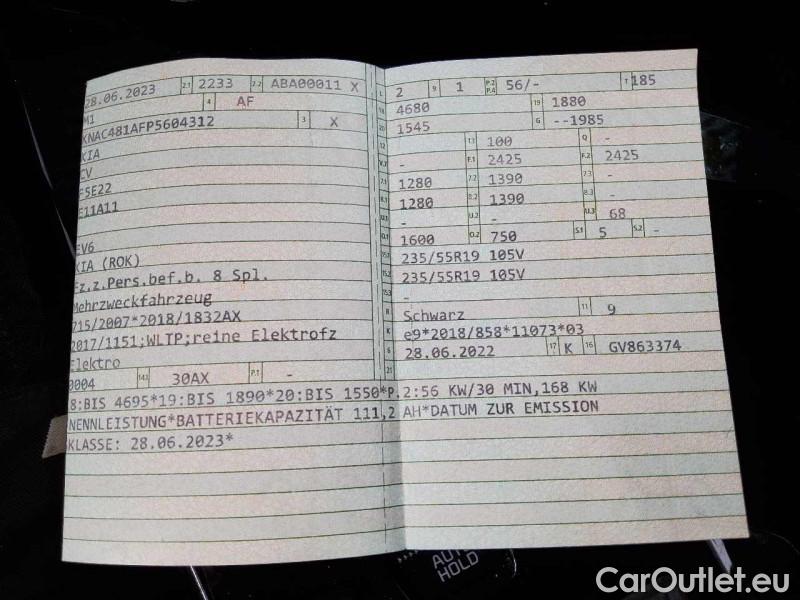 28.06.2023 2.1 2233 2.2 ABA00011 X
M1 4 AF
KNAC481AFP5604312 3 X
KIA
CV
F5E22
E11A11
EV6
KIA (ROK)
Fz.z.Pers.bef.b. 8 Spl.
Mehrzweckfahrzeug
715/2007*2018/1832AX
2017/1151;WLTP;reine Elektrofz
Elektro
0004 14.1 30AX P.1 -
L 2 9 1 P.2 P.4 56/- T 185
18 4680 19 1880
20 1545 G --1985
12 13 100 Q -
V.7 - F.1 2425 F.2 2425
7.1 1280 7.2 1390 7.3 -
8.1 1280 8.2 1390 8.3 -
U.1 - U.2 - U.3 68
O.1 1600 O.2 750 S.1 5 S.2 -
15.1 235/55R19 105V
15.2 235/55R19 105V
15.3 -
R Schwarz 11 9
K e9*2018/858*11073*03
6 28.06.2022 17 K 16 GV863374
21
8:BIS 4695*19:BIS 1890*20:BIS 1550*P.2:56 KW/30 MIN,168 KW
NENNLEISTUNG*BATTERIEKAPAZITÄT 111,2 AH*DATUM ZUR EMISSION
KLASSE: 28.06.2023*
AUTO
HOLD
CarOutlet.eu